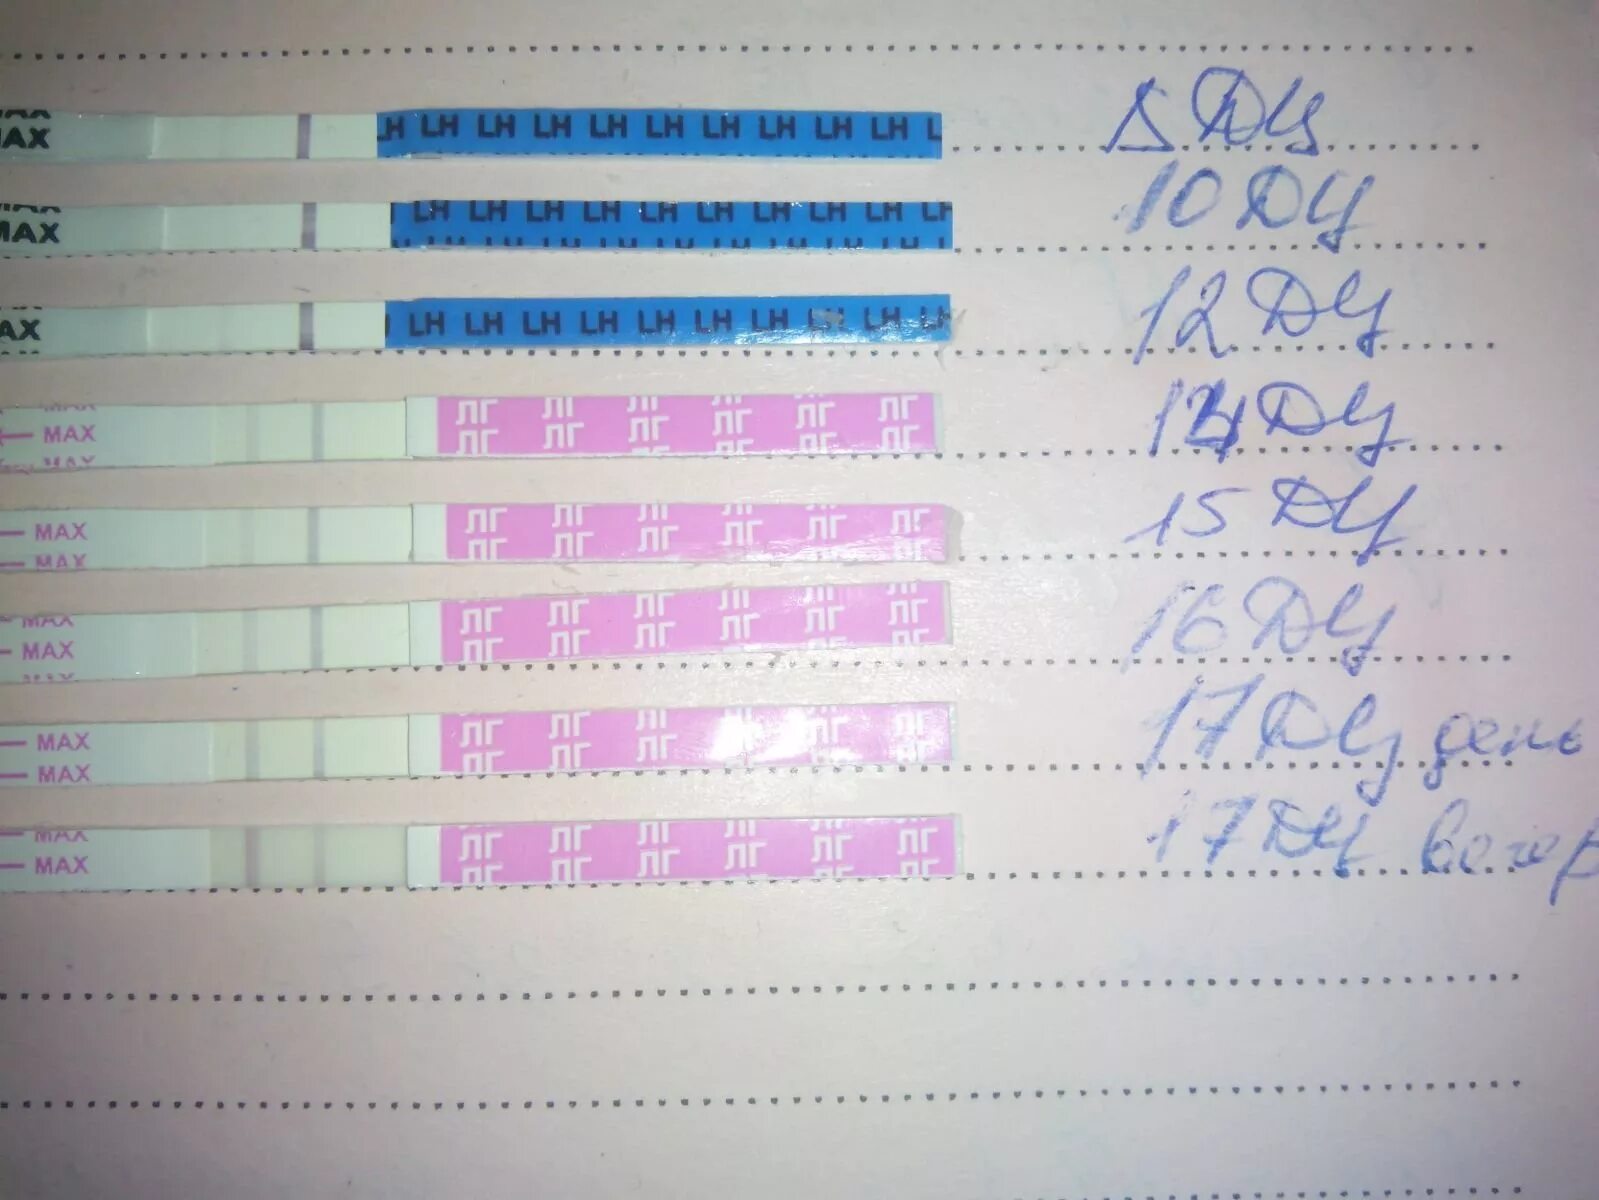 MAX
MAX LH LH LH LH LH LH LH LH LH L ДЦ
MAX LH LH LH LH LH LH LH LH LH LH 10 ДЦ
MAX LH LH LH LH LH LH LH LH
AX LH LH LH LH LH LH LH LH LH LH 12 ДЦ
MAX ЛГ ЛГ ЛГ ЛГ ЛГ ЛГ
MAX ЛГ ЛГ ЛГ ЛГ ЛГ ЛГ ДЦ
MAX
MAX ЛГ ЛГ ЛГ ЛГ ЛГ ЛГ 15 ДЦ
MAX ЛГ ЛГ ЛГ ЛГ ЛГ ЛГ
MAX ЛГ ЛГ ЛГ ЛГ ЛГ ЛГ
MAX ЛГ ЛГ ЛГ ЛГ ЛГ ЛГ 16 ДЦ
MAX
MAX ЛГ ЛГ ЛГ ЛГ ЛГ ЛГ 17 ДЦ день
MAX ЛГ ЛГ ЛГ ЛГ ЛГ ЛГ
MAX ЛГ ЛГ ЛГ ЛГ ЛГ ЛГ
MAX ЛГ ЛГ ЛГ ЛГ ЛГ ЛГ 17 ДЦ вечер